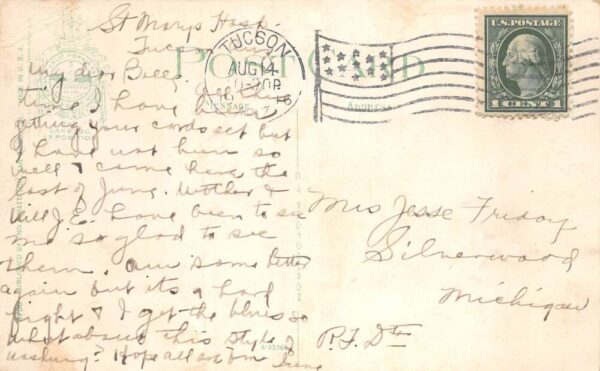 St Marys Hosp.
Tucson
My dear
time I have been
getting your cards set but
I have not been so
well & came here the
last of June. Mother &
Will J.E. have been to see
me so glad to see
them. am some better
again but its a hard
fight & I get the blues so
what about this style of
washing? Hope all are
POST CARD
MESSAGE
ADDRESS
TUCSON
AUG 14
U.S. POSTAGE
1 CENT 1
Mrs Jesse Friday
Silverwood
Michigan
R.F.D